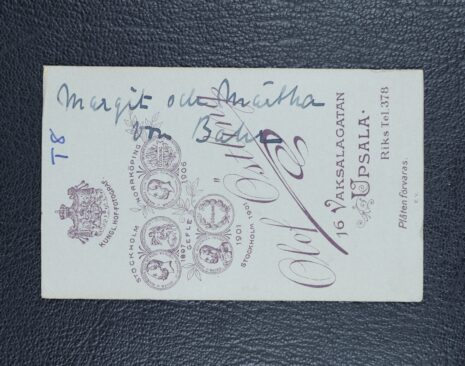 Margit och Märtha
von Bahr
T8
KUNGL. HOF-FOTOGRAF
NORRKÖPING 1906
STOCKHOLM 1897 GEFLE 1901
STOCKHOLM 1901
Olof
16 VAKSALAGATAN
UPSALA.
Riks Tel. 378
Plåten förvaras.